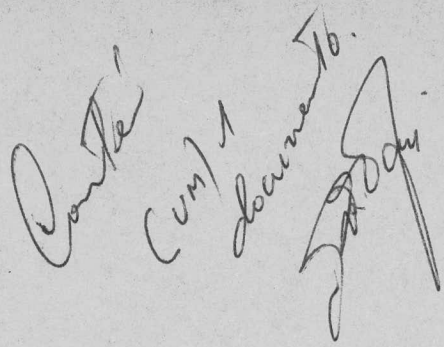 Contém
(um) 1
documento.